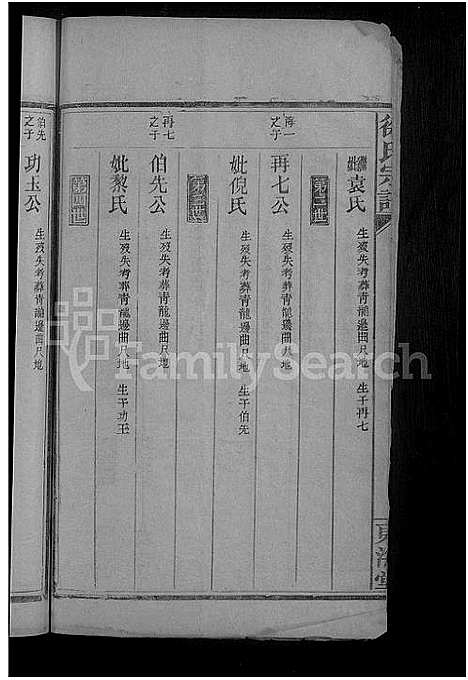 徐氏宗譜
妣袁氏 生歿失考葬青龍邊曲尺地 生子再七
第二世
再一之子
再七公 生歿失考葬青龍邊曲尺地
妣倪氏 生歿失考葬青龍邊曲尺地 生子伯先
第三世
再七之子
伯先公 生歿失考葬青龍邊曲尺地
妣黎氏 生歿失考葬青龍邊曲尺地 生子功玉
第四世
伯先之子
功玉公 生歿失考葬青龍邊曲尺地
東海堂
FamilySearch